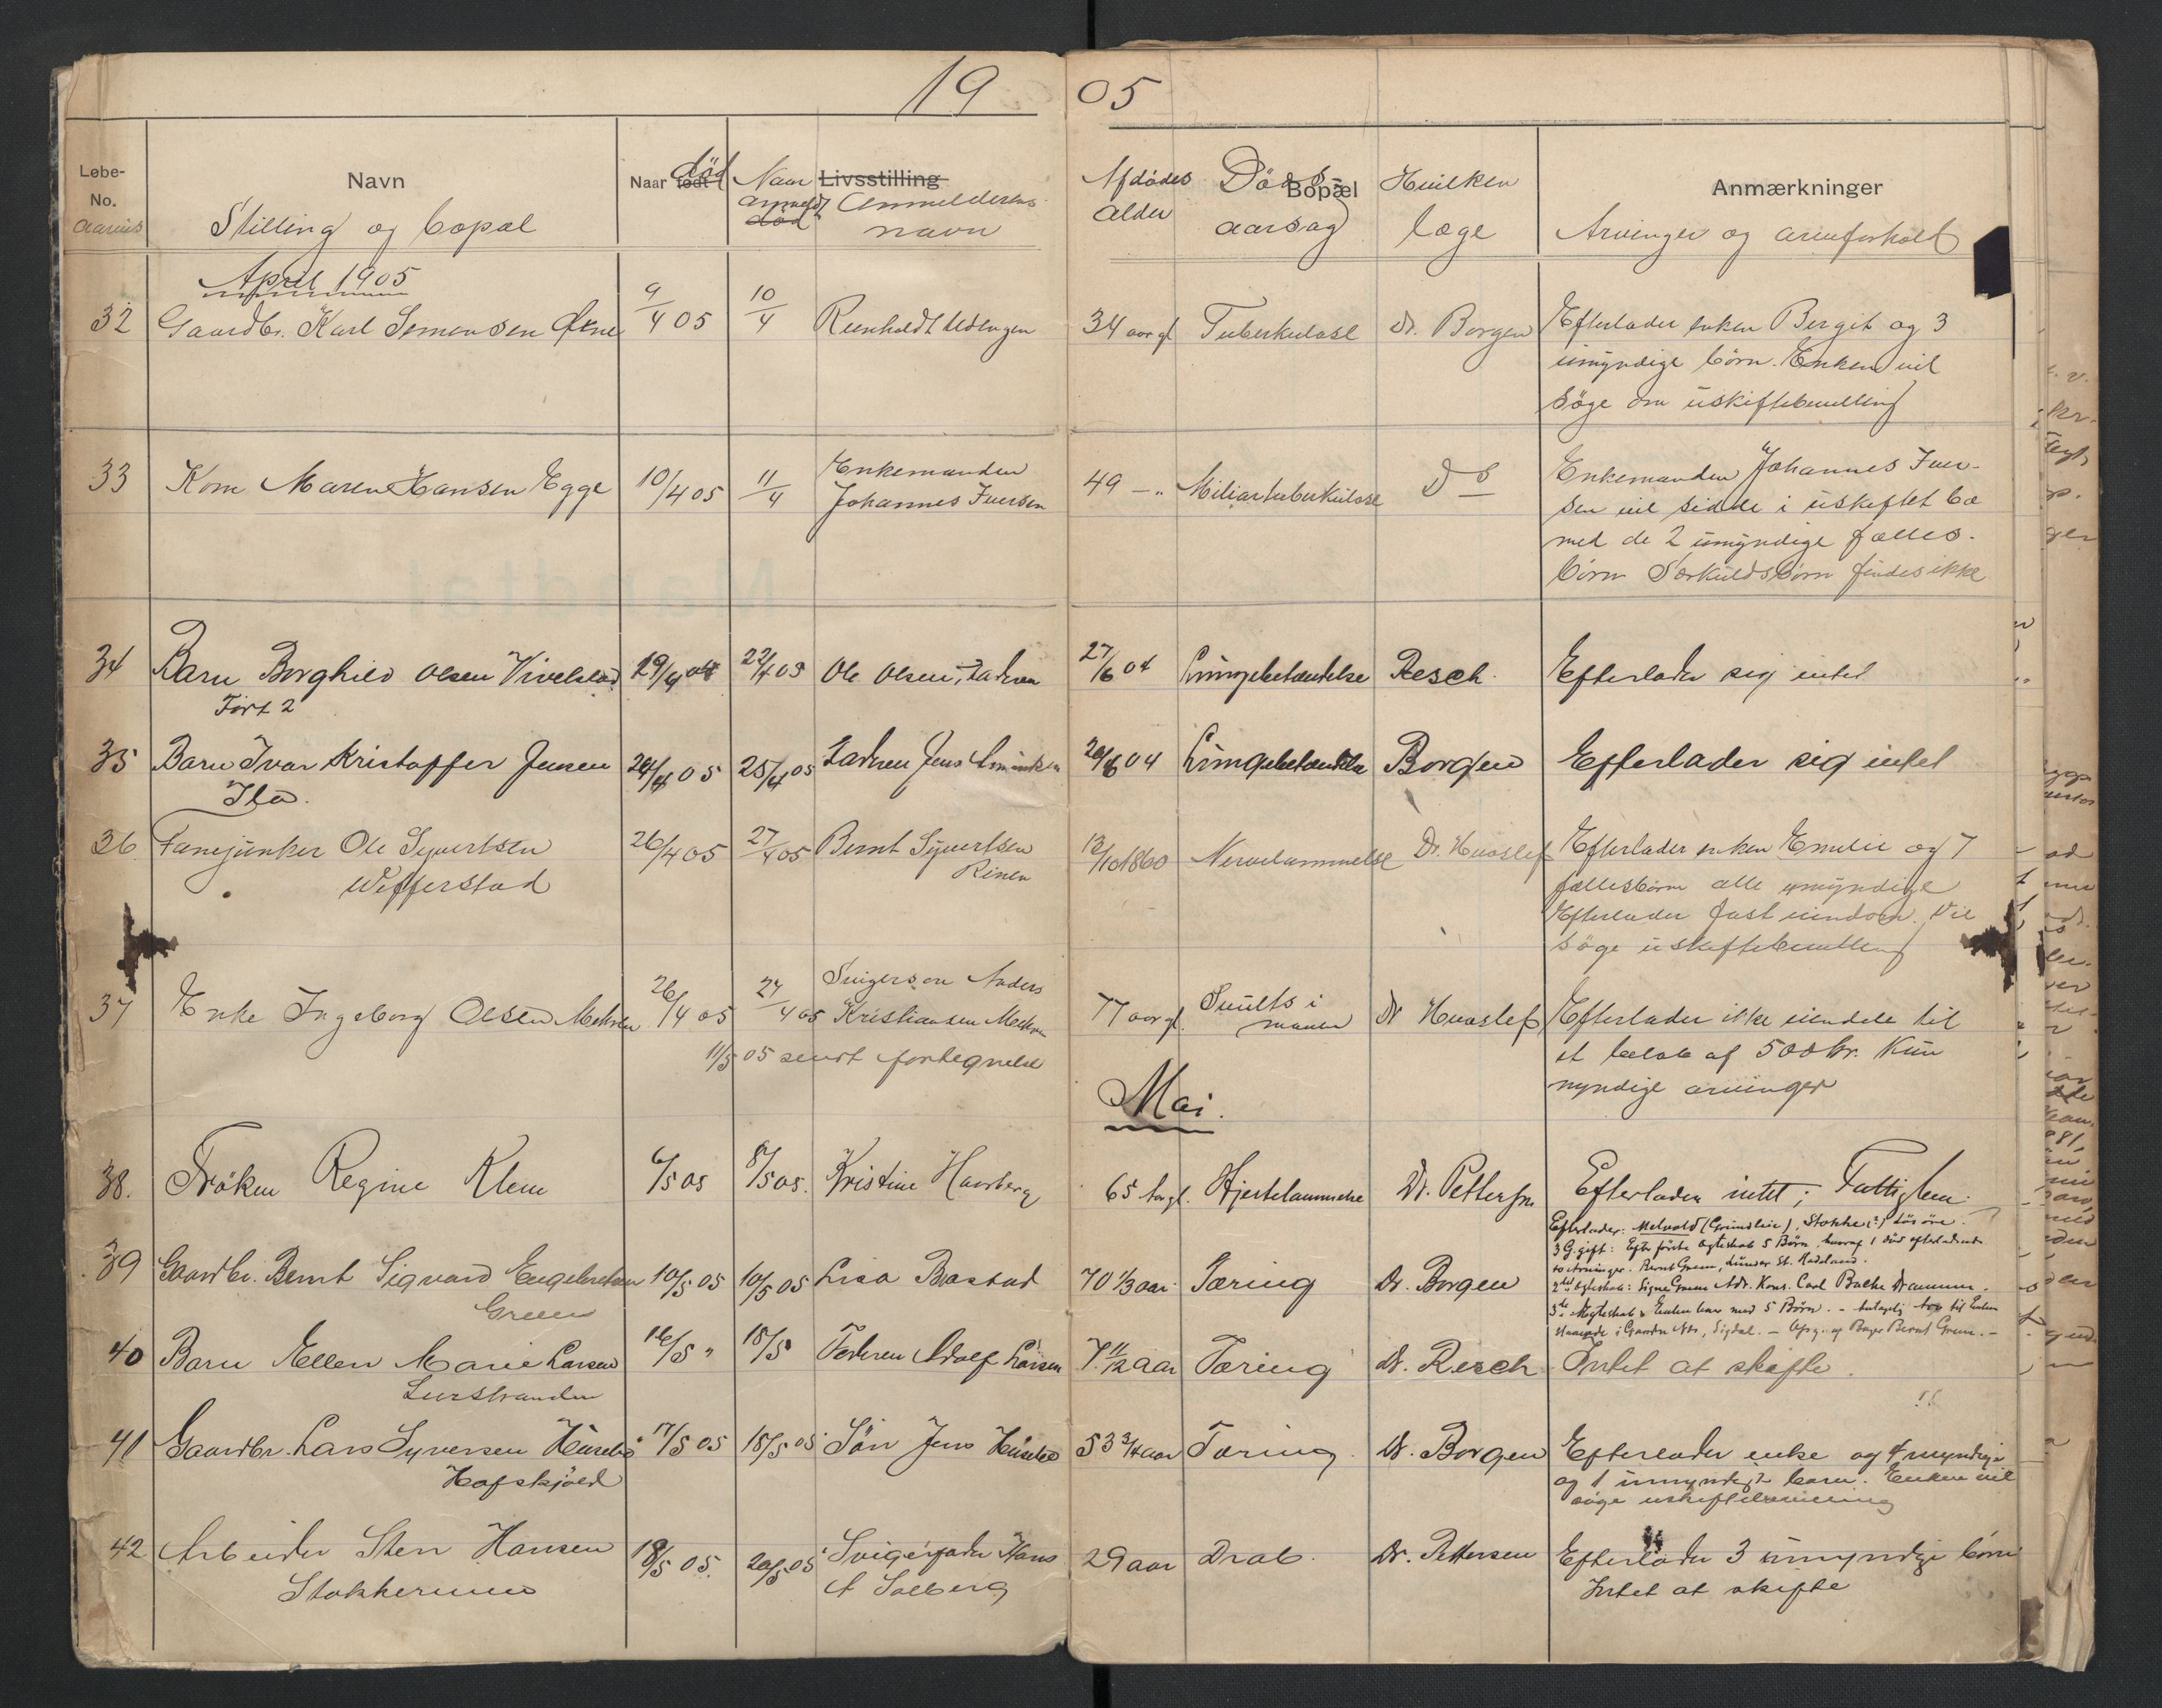 1905
Løbe-No. aarius
Navn
Stilling og bopæl
Naar født død
Naar anmeldt død
Livsstilling Anmelderens navn
Afdødes alder
Bopæl Døds aarsag
Hvilken læge
Anmærkninger
Arvinger og arveforhold
April 1905
32 Gaardbr. Karl Simensen 9/4 05 10/4 34 aar gl Tuberkulose Dr. Borgen Efterlader enken Bergit og 3
umyndige börn. Enken vil
söge om uskiftebevilling
33 Kone Maren Hansen Egge 10/4 05 11/4 Enkemanden
Johannes Iversen 49 -"- Miliærtuberkulose Do Enkemanden Johannes Iver-
sen vil sidde i uskiftet bo
med de 2 umyndige fælles-
börn Særkuldsbörn findes ikke
34 Barn Borghild Olsen Vivelstad 19/4 05 22/4 05 Ole Olsen, Faderen 27/6 04 Lungebetændelse Resch Efterlader sig intet
35 Barn Ivar Kristoffer Jensen 24/4 05 25/4 05 Faderen Jens 29/6 04 Lungebetændelse Borgen Efterlader sig intet
36 Fanejunker Ole Syvertsen 26/4 05 27/4 05 Bernt Syvertsen
Rinen 13/10 1860 Nervelammelse Dr. Huaslef Efterlader enken Emilie og 7
Wefferstad fællesbörn alle umyndige
Efterlader fast eiendom. Vil
söge uskiftebevilling
37 Enke Ingeborg Olsen 26/4 05 27/4 05 Svigersøn Anders
Kristiansen 77 aar gl. Svulst i
maven Dr Huaslef Efterlader ikke eiendele til
11/5 05 sendt fortegnelse et beløb af 500 kr. Kun
myndige arvinger
Mai.
38. Fröken Regine Klem 6/5 05 8/5 05. Kristine Haarberg 65 aar gl. Hjertelammelse Dr. Pettersen Efterlader intet; Fattiglem.
39 Gaardbr. Bernt Sigvard Engebretsen 10/5 05 10/5 05 Lisa Brastad 70 1/3 aar Tæring Dr. Borgen
Green
Efterlader: (Grundleie), Stokke (?) Lösöre.
3 G. gift: Efter förste Ægteskab 5 Börn, hvoraf 1 död efterladende
10 Arvinger. Bernt Green,
2det Ægteskab: Signe Green Adr. Kons. Carl Drammen.
3die Ægteskab Enken har med 5 Börn.
40 Barn Ellen Marie Larsen 16/5 " 18/5 Faderen Adolf Larsen 7 11/12 aar Tæring Dr. Resch Intet at skifte.
Lierstranden
41 Gaardbr. Lars Syversen Huseby 17/5 05 18/5 05 Sön Jens Huseby 53 3/4 aar Tæring Dr. Borgen Efterlader enke og 4 myndige
Hafskjöld og 1 umyndigt barn. Enken vil
söge uskiftebevilling
42 Arbeider Sten Hansen 18/5 05. 20/5 05 Svigerfader Hans
A Solberg 29 aar Drab. Dr. Pettersen Efterlader 3 umyndige börn
Stokkerinne Intet at skifte